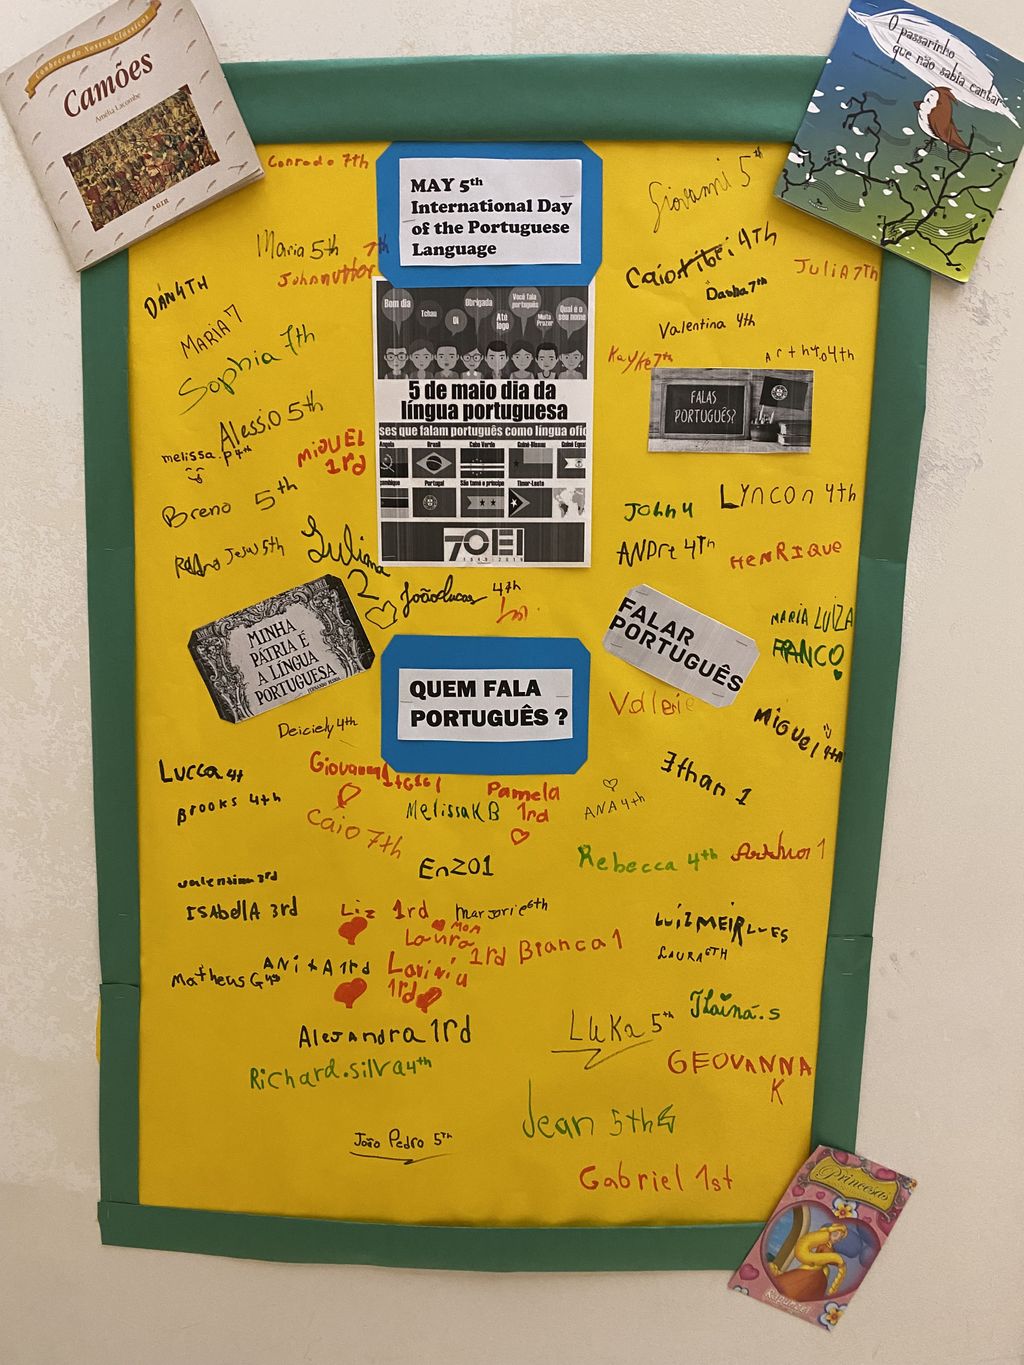 Conhecendo Nossos Clássicos
Camões
Amélia Lacombe
AGIR
O passarinho
que não sabia cantar
Conrado 7th
MAY 5th
International Day
of the Portuguese
Language
Giovanni 5th
Maria 5th
7th
John
Caio 4TH
JULIA 7TH
DAN4TH
Dasha 7th
MARIA 7
Valentina 4th
Sophia 7th
Kayke 7th
Arthur 04th
Bom dia
Tchau
Oi
Obrigada
Até
logo
Você fala
português
Muito
Prazer
Qual é o
seu nome
5 de maio dia da
língua portuguesa
ses que falam português como língua ofic
Angola
Brasil
Cabo Verde
Guiné-Bissau
Guiné Equat
çambique
Portugal
São tomé e príncipe
Timor-Leste
7OEI
1949-2019
FALAS
PORTUGUÊS?
Alessio 5th
melissa.p4th
MiGUEL
1rd
Breno 5th
Jesus 5th
Juliana
2
JOHN 4
Lyncon 4th
ANDré 4Th
HENRIQUE
João Lucas 4th
MARIA LUIZA
FRANCO
MINHA
PÁTRIA É
A LÍNGUA
PORTUGUESA
FERNANDO PESSOA
FALAR
PORTUGUÊS
QUEM FALA
PORTUGUÊS ?
Valerie
Miguel 4th
Deiciely 4th
Lucca 4t
Giovanna
Ethan 1
Brooks 4th
Pamela
1rd
MelissaKB
ANA 4th
Caio 7th
Enzo1
Rebecca 4th
Arthur 1
Valentina 3rd
ISAbellA 3rd
Liz 1rd
Marjorie 6th
MOM
Laura
1rd
Bianca 1
LAURA 6TH
Matheus G 4th
ANitA 1rd
Laviniu
1rd
Alejandra 1rd
LUKa 5th
Tainá.s
Richard.silva4th
GEOVANNA
K
Jean 5th
João Pedro 5TH
Gabriel 1st
Princesas
Rapunzel